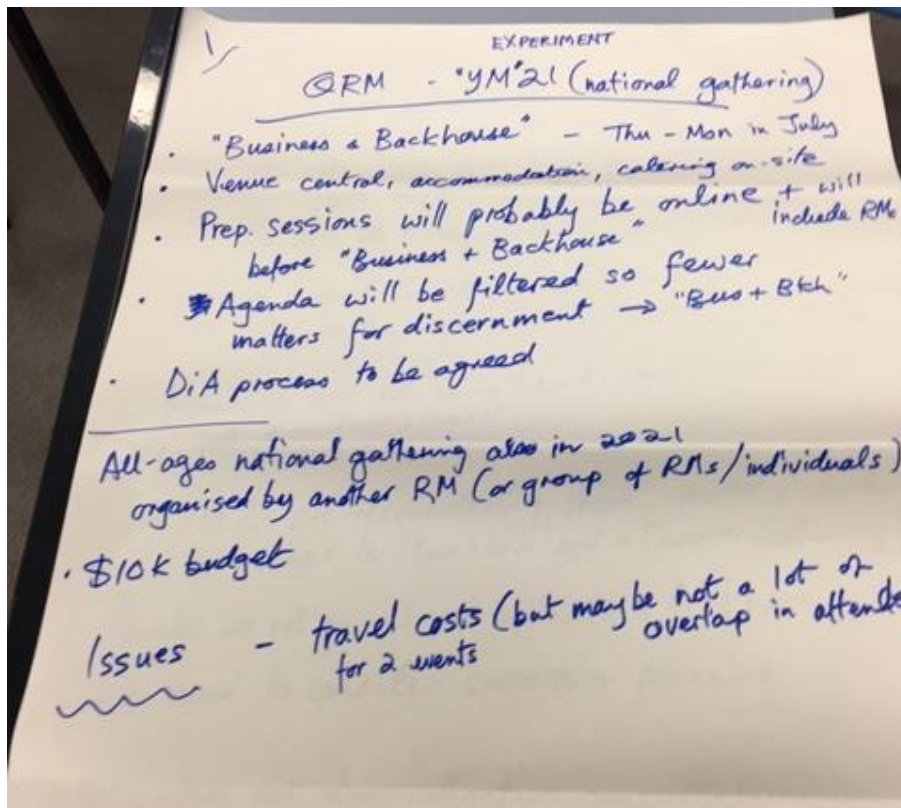 1/
EXPERIMENT
QRM - "YM"21 (national gathering)
• "Business & Backhouse" - Thu - Mon in July
• Venue central, accommodation, catering on-site
• Prep. sessions will probably be online + will
include RMs
before "Business + Backhouse"
• Agenda will be filtered so fewer
matters for discernment → "Bus + Bkh"
• DiA process to be agreed
All-ages national gathering also in 2021
organised by another RM (or group of RMs/individuals)
• $10K budget
Issues - travel costs (but maybe not a lot of
for 2 events overlap in attende